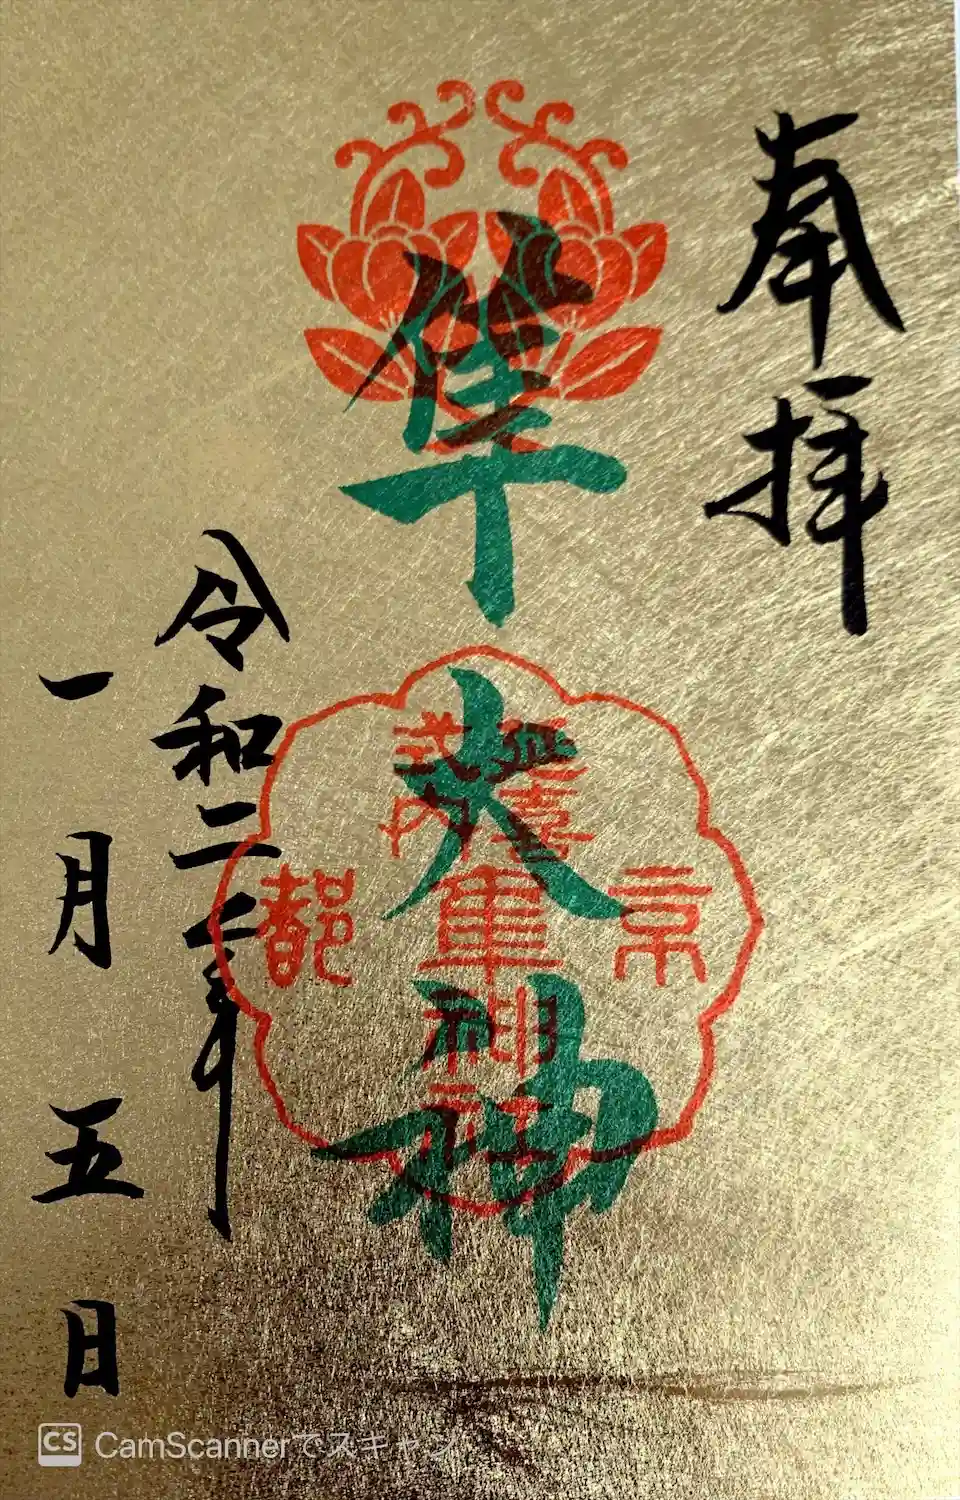 奉拝
隼大神
延喜
式内
隼神社
京都
令和二年
一月五日
CS CamScannerでスキャン